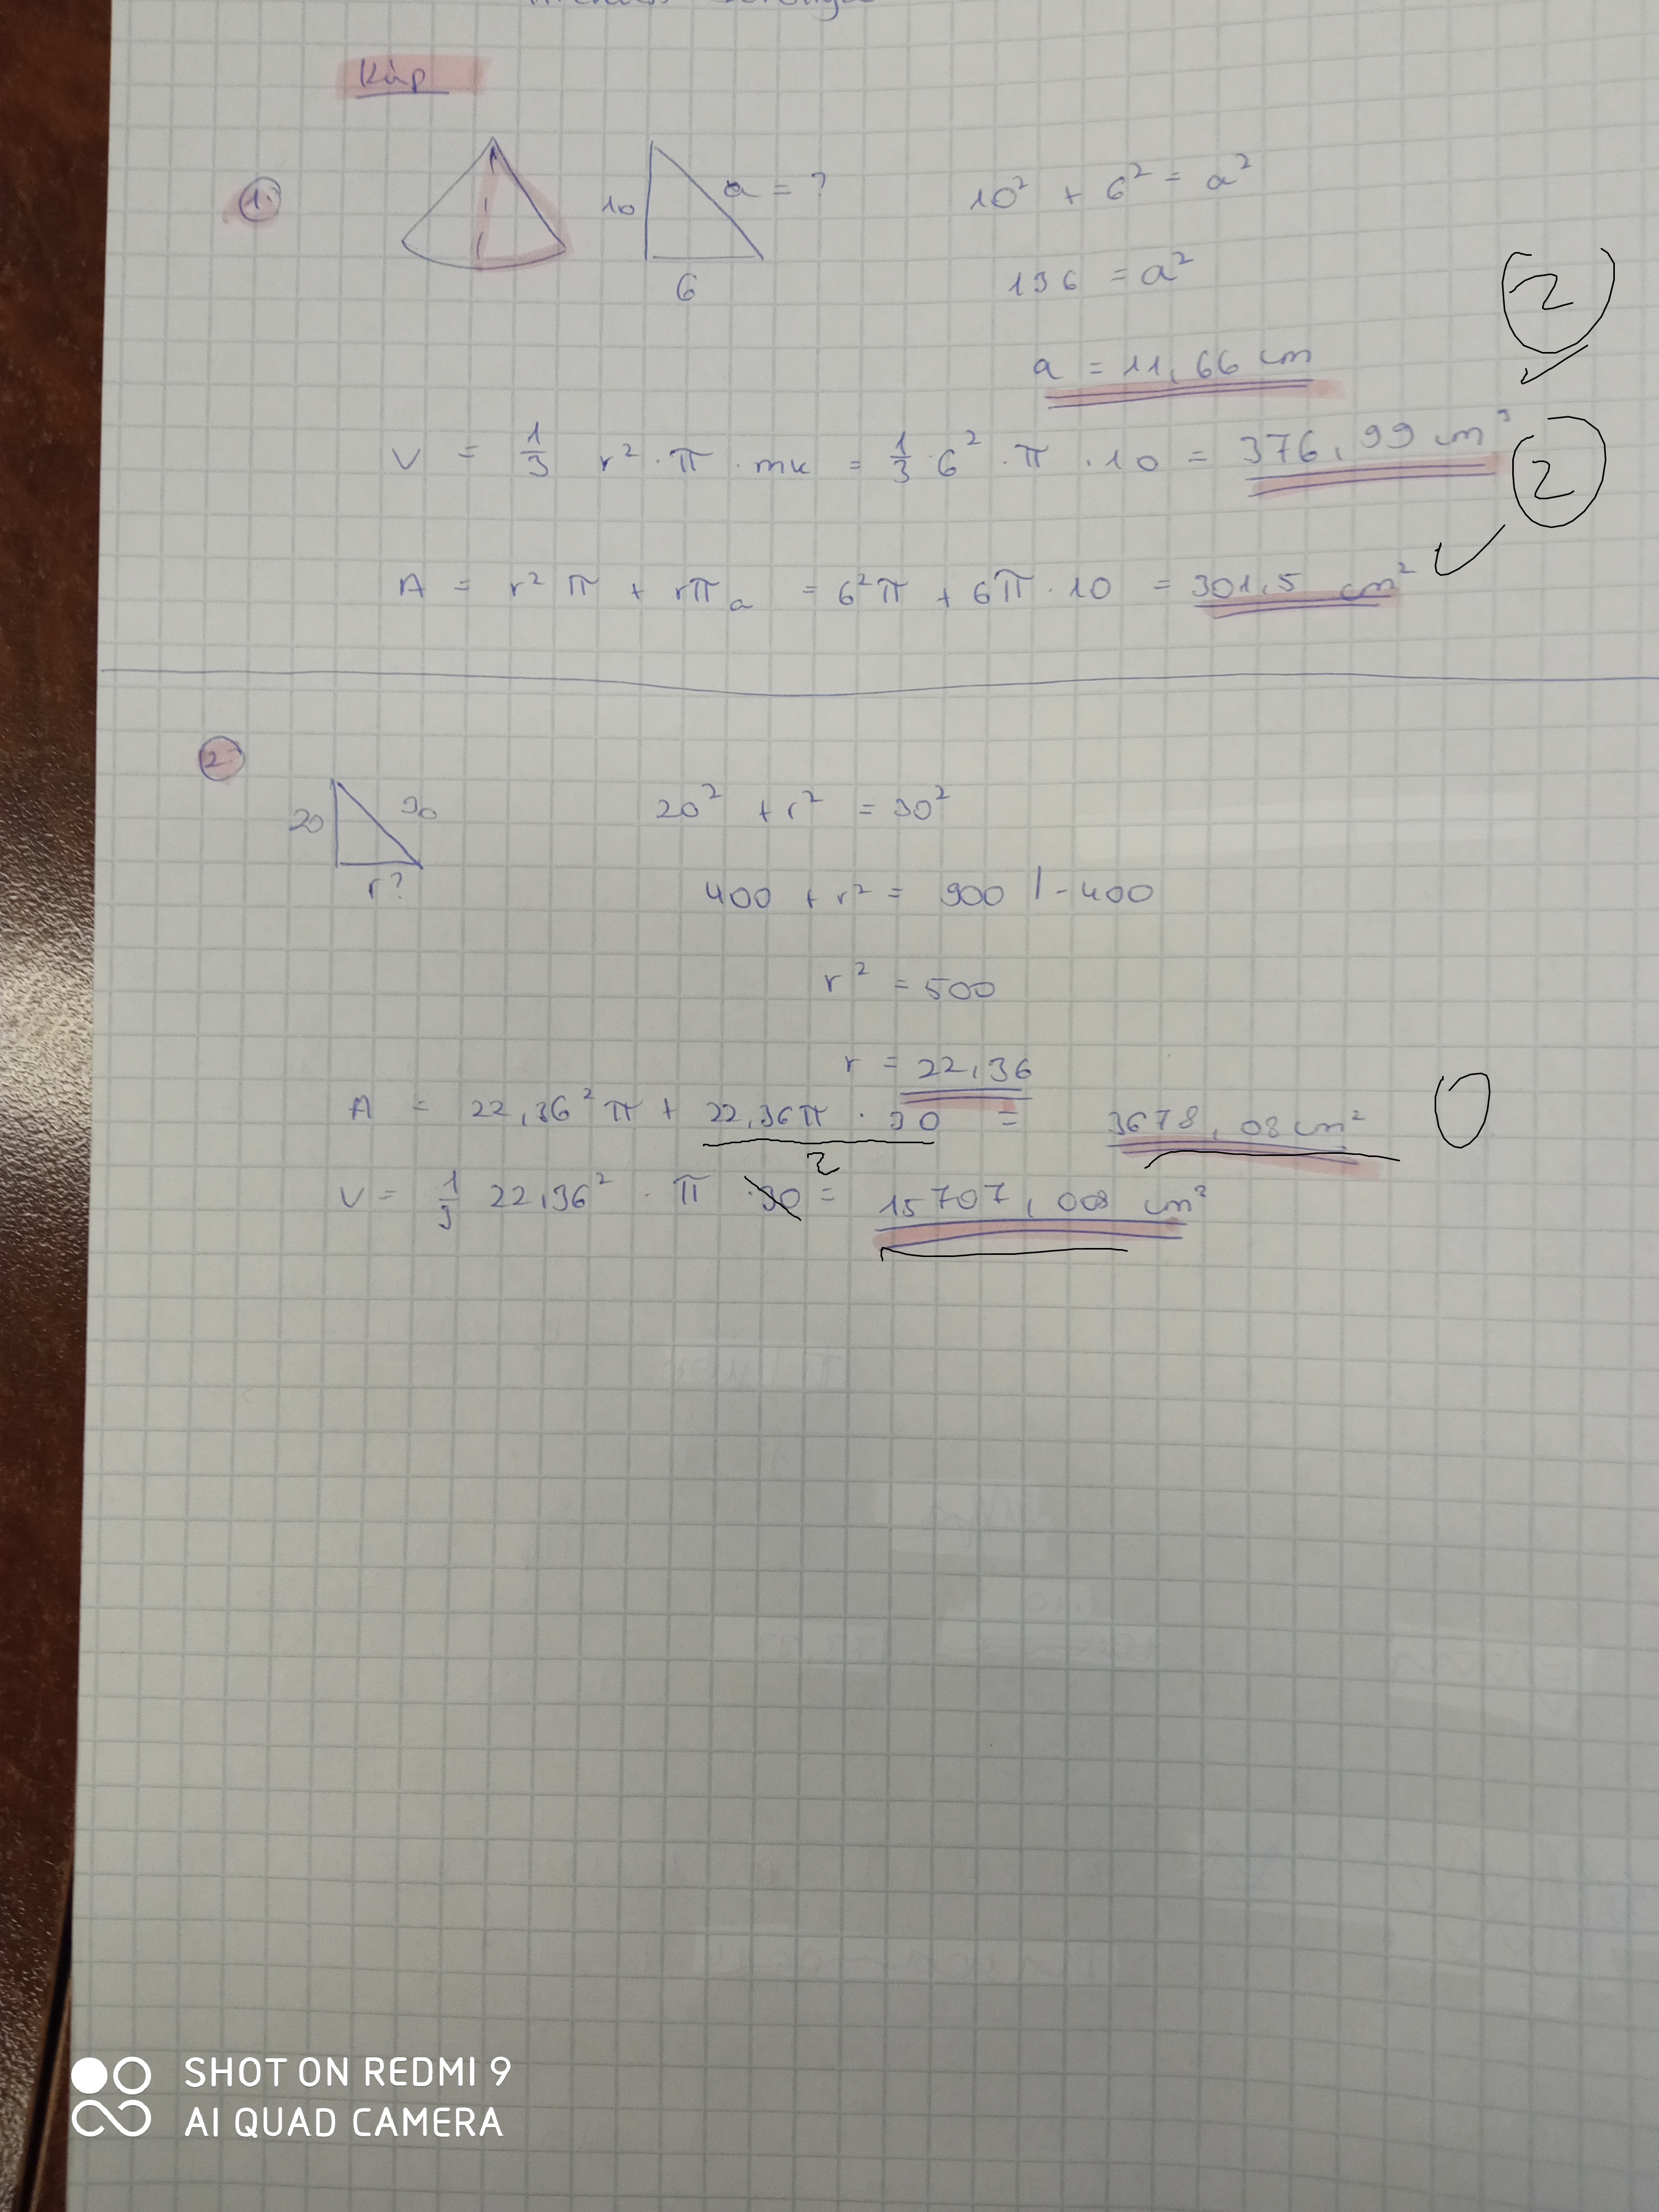 Kúp
1.
10
a = ?
6
10² + 6² = a²
136 = a²
2
a = 11,66 cm
V = 1/3 r² · π · mk = 1/3 · 6² · π · 10 = 376,99 cm³
2
A = r² π + rπ a = 6²π + 6π · 10 = 301,5 cm²
2.
20
30
r?
20² + r² = 30²
400 + r² = 900 | - 400
r² = 500
r = 22,36
A = 22,36² π + 22,36π · 30 = 3678,08 cm²
0
V = 1/3 22,36² · π · 30 = 15707,008 cm³
SHOT ON REDMI 9
AI QUAD CAMERA